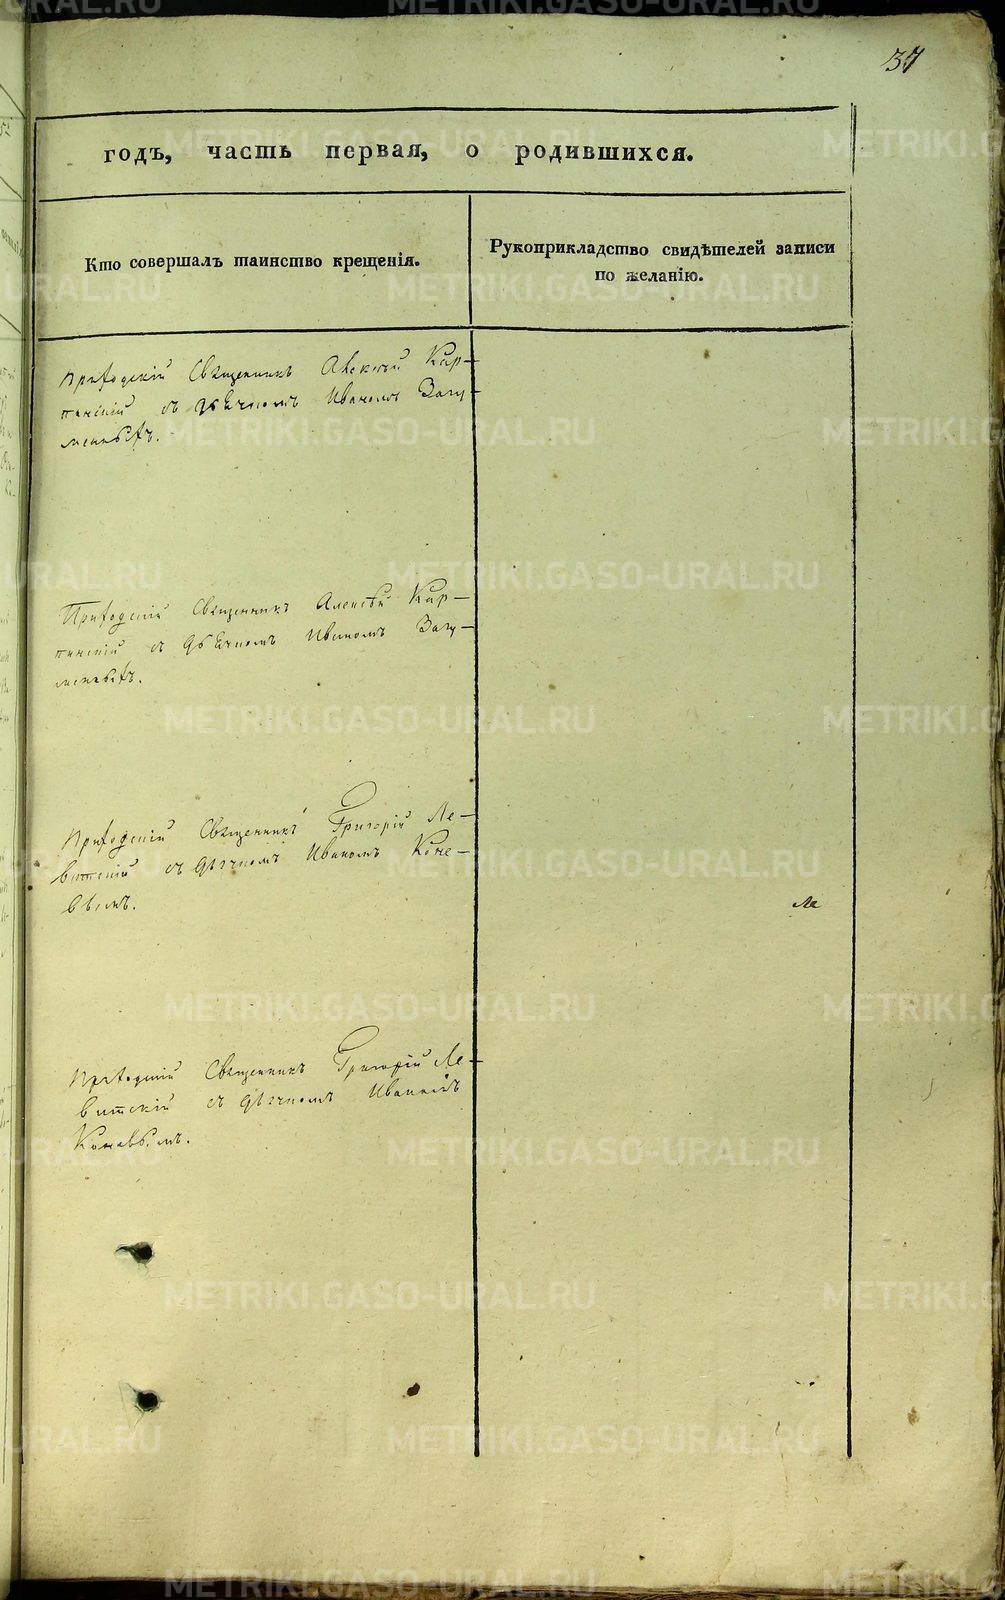 37
годъ, часть первая, о родившихся.
Кто совершалъ таинство крещенія.
Рукоприкладство свидѣтелей записи
по желанію.
Приходскій Священникъ Алексѣй Кар-
пинскій съ дьячкомъ Иваномъ Загу-
менныхъ.
Приходскій Священникъ Алексѣй Кар-
пинскій съ дьячкомъ Иваномъ Загу-
менныхъ.
Приходскій Священникъ Григорій Ле-
витскій съ дьячкомъ Иваномъ Коне-
вымъ.
Приходскій Священникъ Григорій Ле-
витскій съ дьячкомъ Иваномъ
Коневымъ.
METRIKI.GASO-URAL.RU